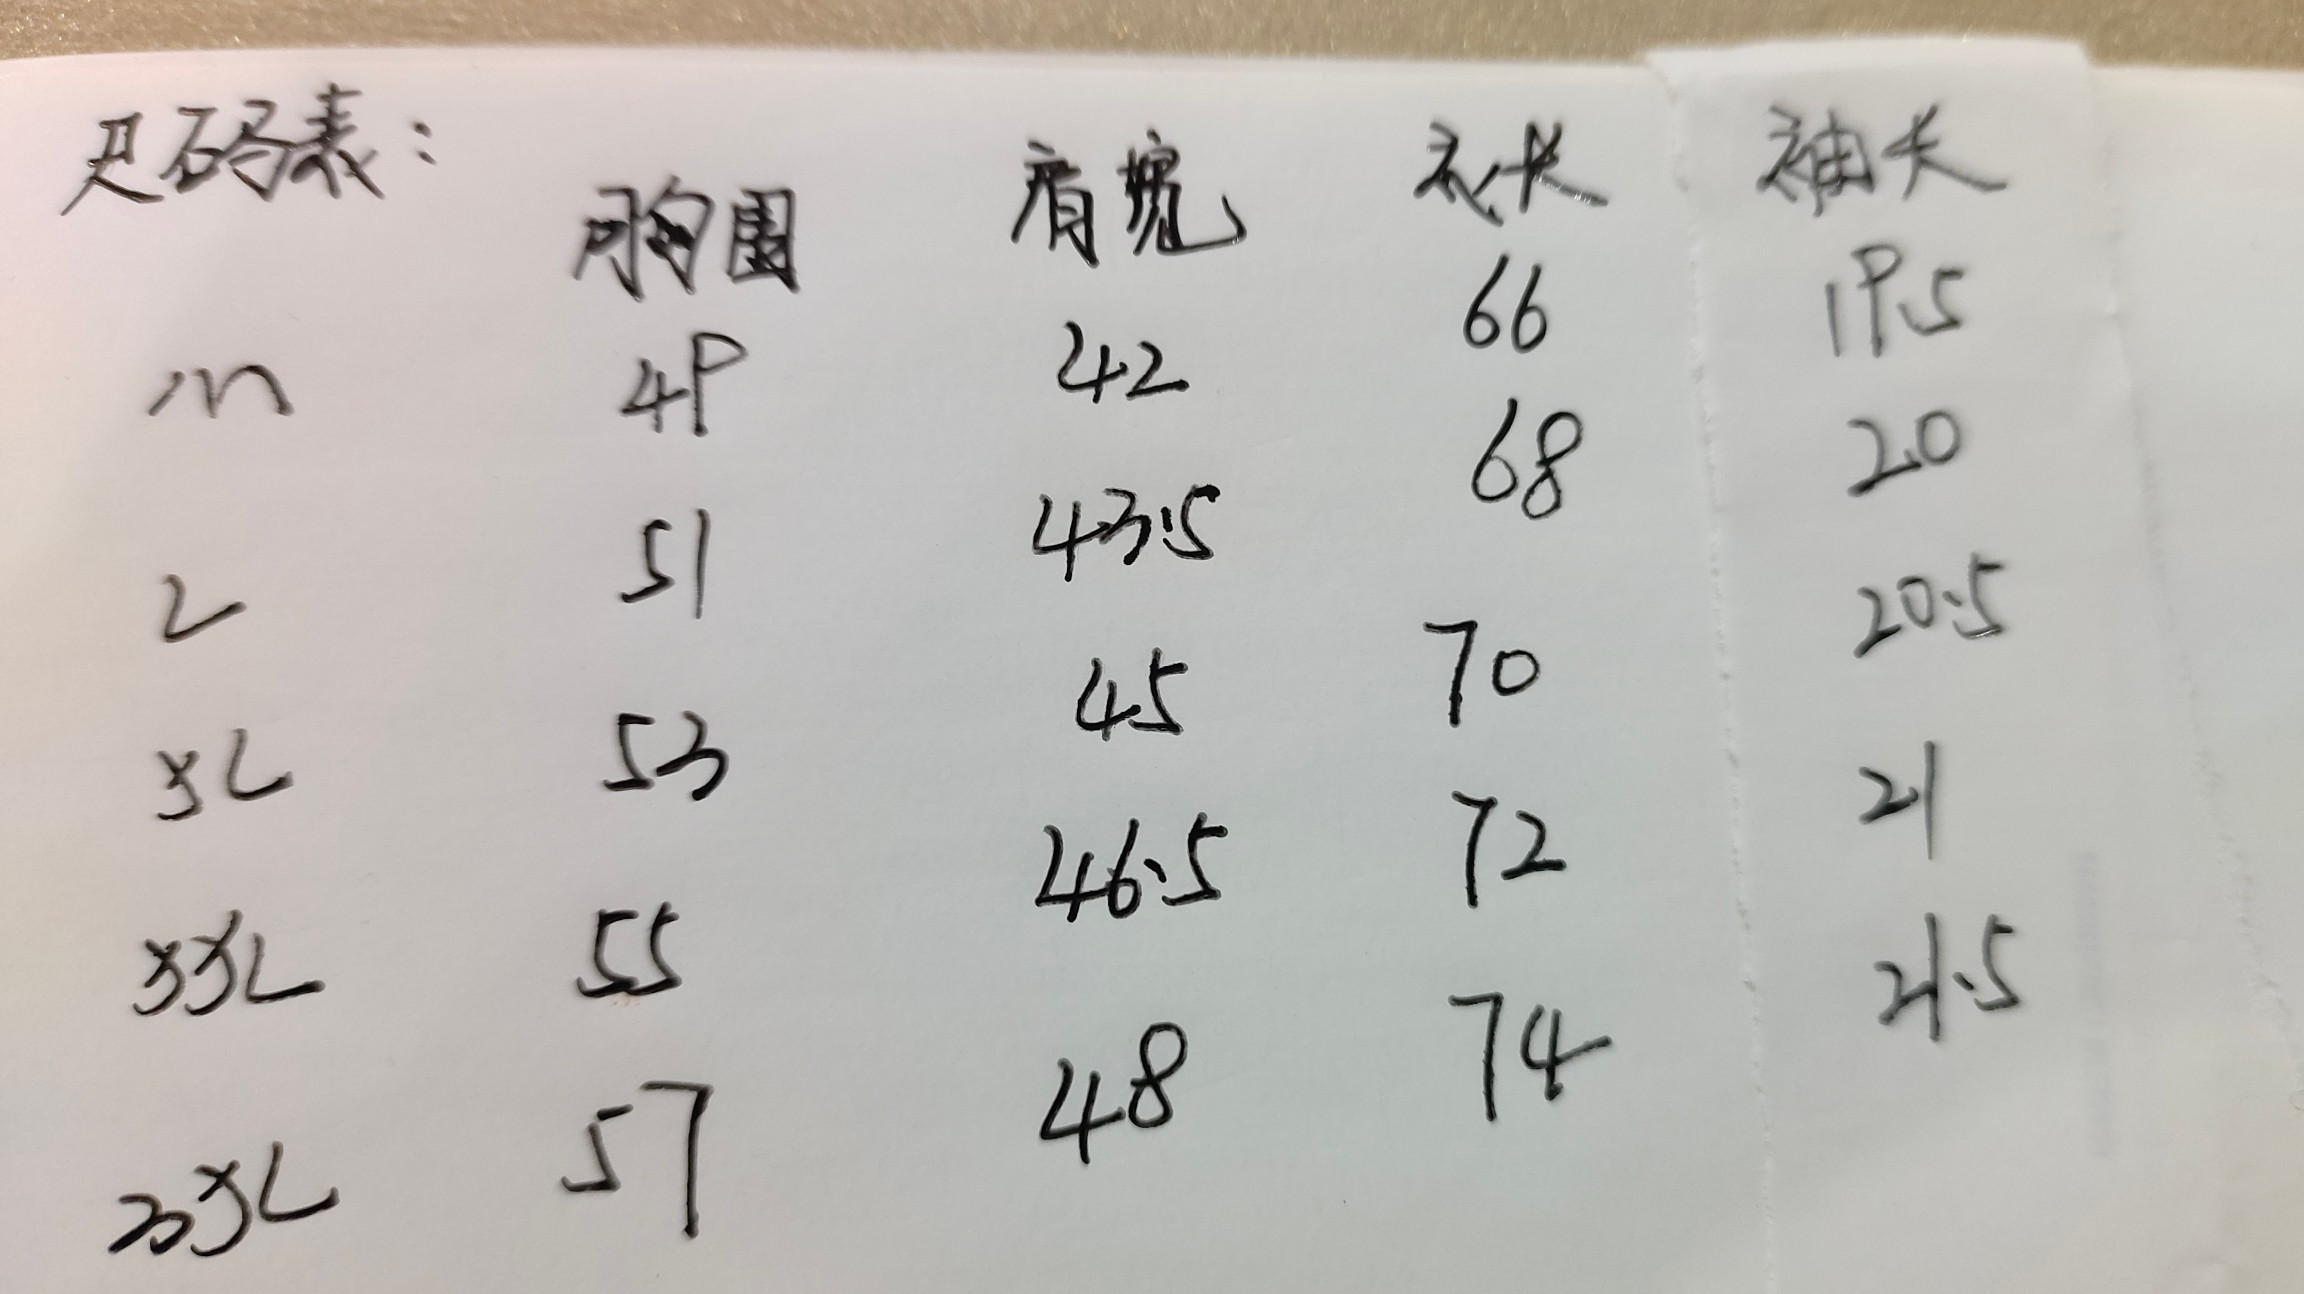 尺码表：
胸围 肩宽 衣长 袖长
m 49 42 66 19.5
L 51 43.5 68 20
XL 53 45 70 20.5
XXL 55 46.5 72 21
3XL 57 48 74 21.5